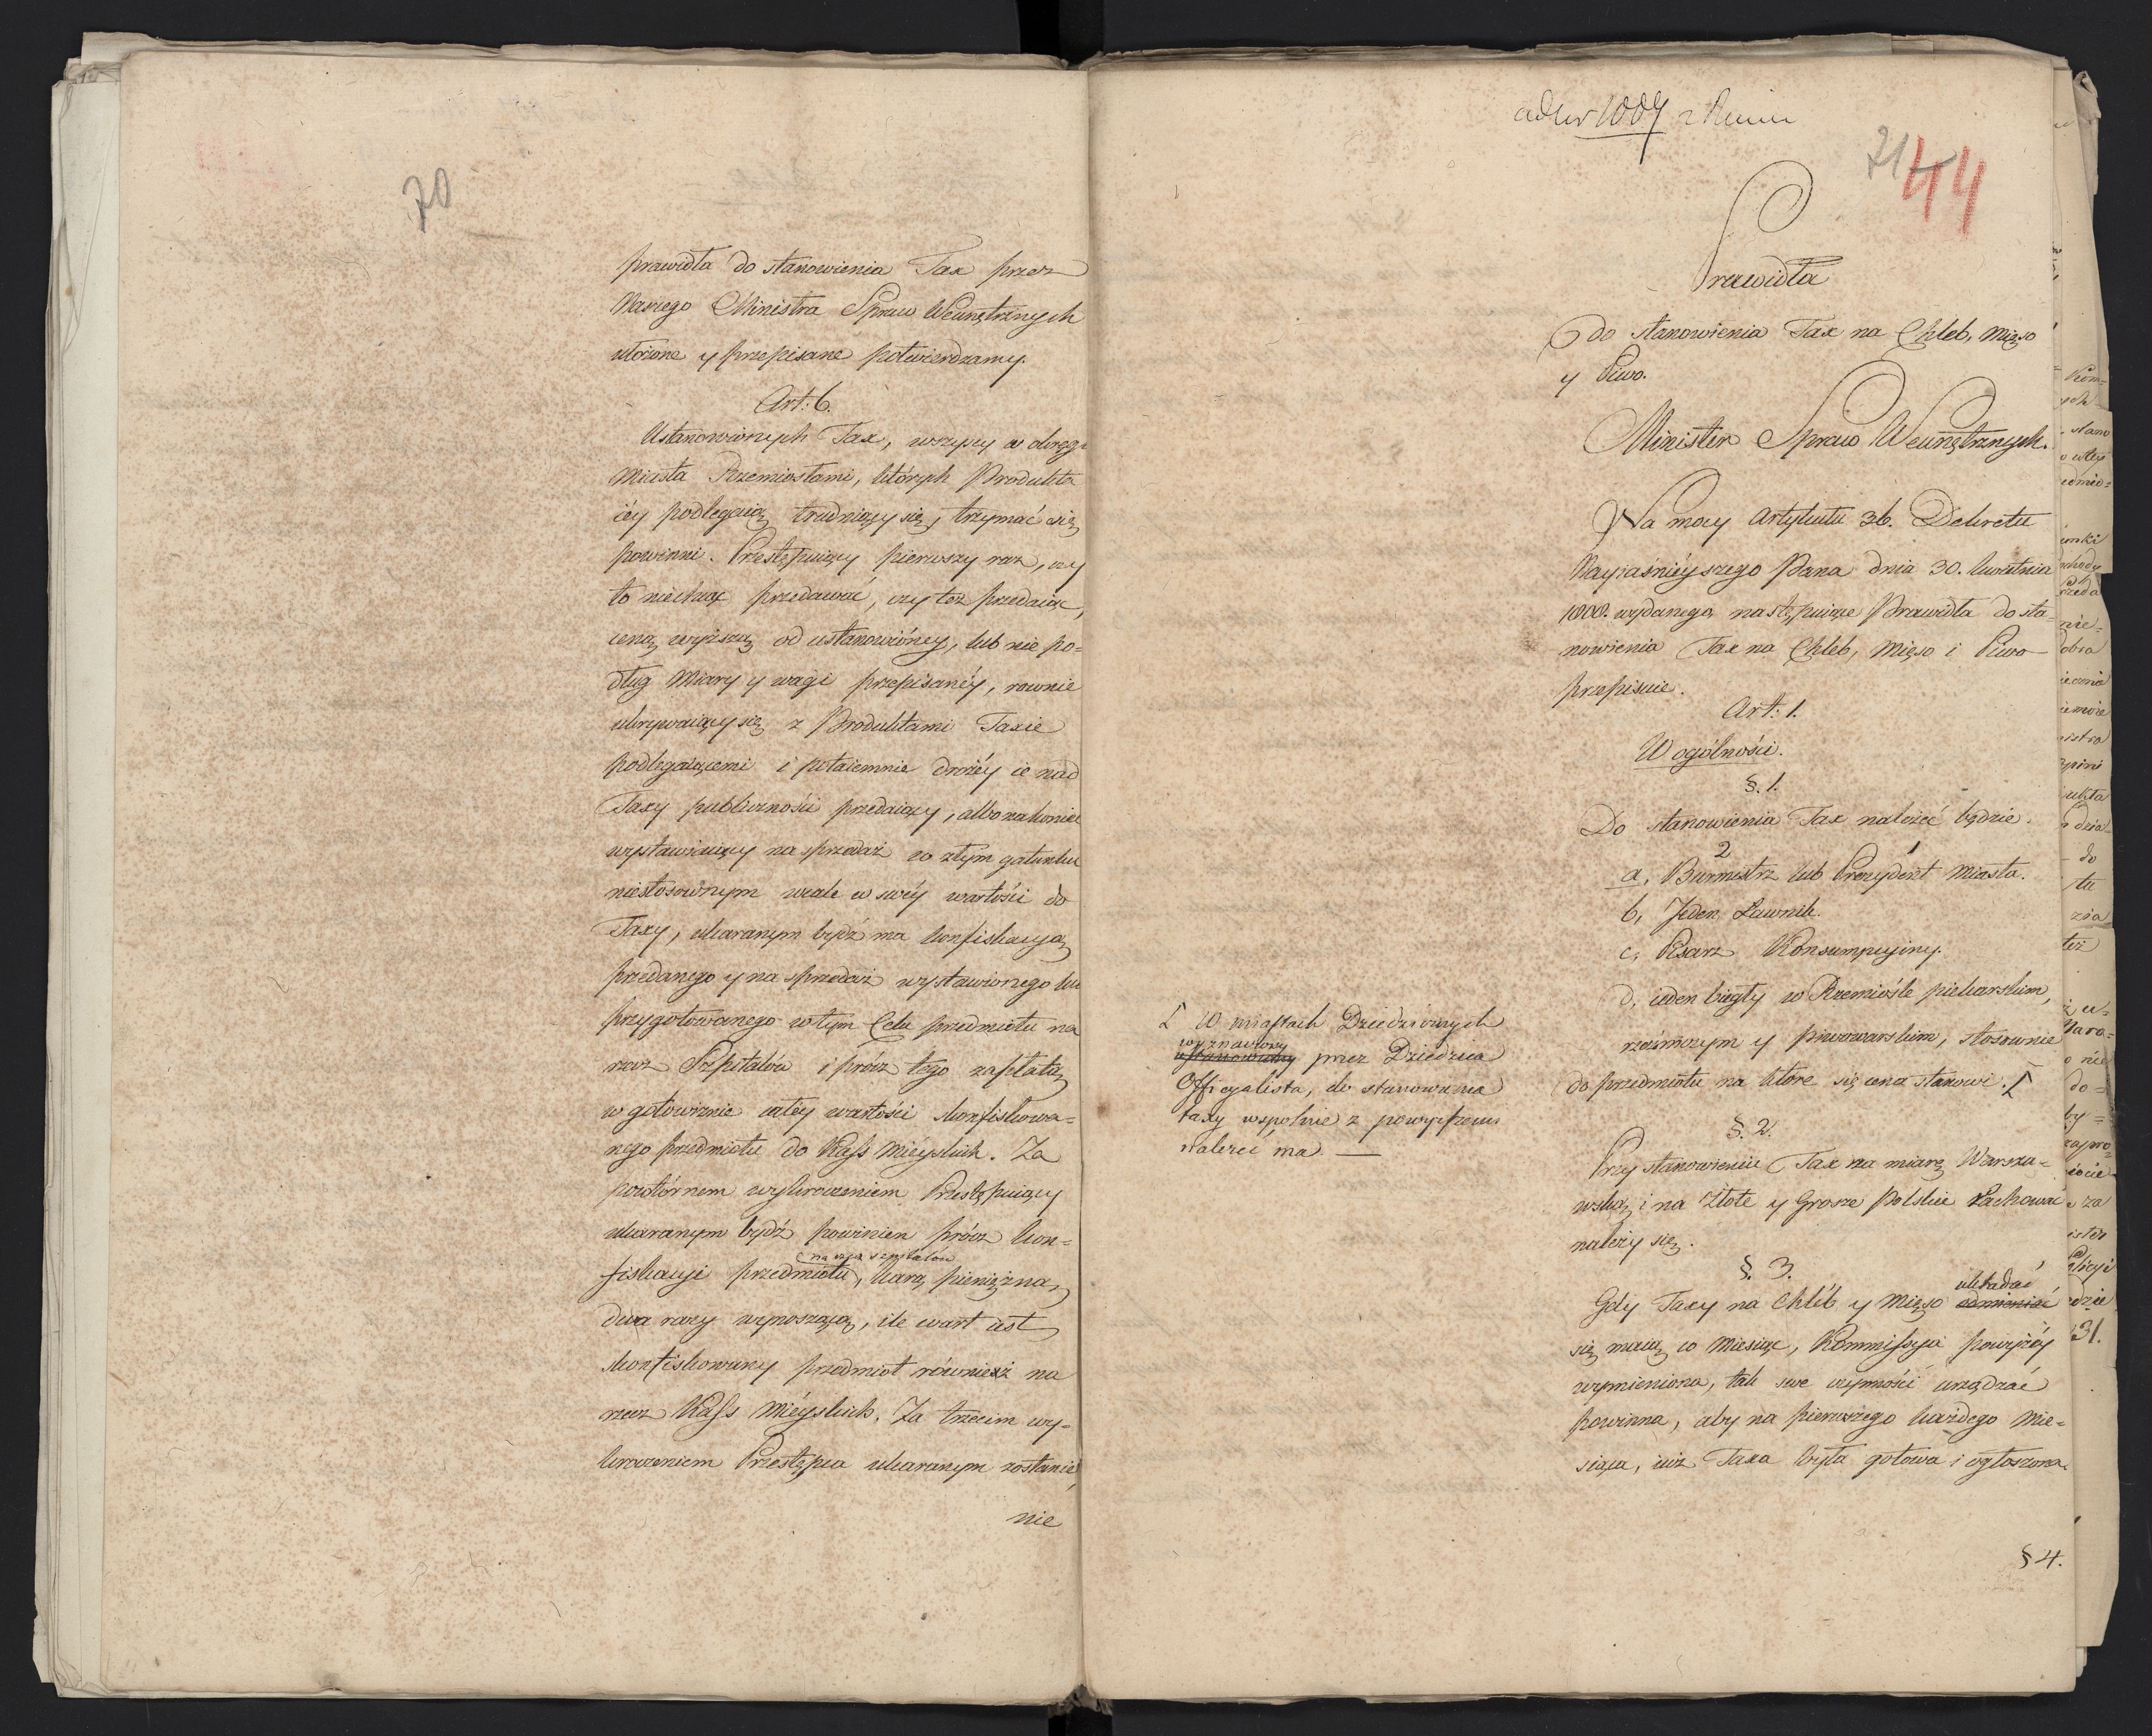 70
prawidła do stanowienia Tax przez
Naszego Ministra Spraw Wewnętrznych
ułożone y przepisane potwierdzamy.
Art: 6.
Ustanowionych Tax, wszyscy w okręgu
Miasta Rzemiosłami, których Produkta
iéy podlegaią trudniący się, trzymać się
powinni. Przestępuiący pierwszy raz, czy
to niechcąc przedawać, czy też przedaiąc,
ceną wyższą od ustanowionéy, lub nie po=
dług Miary y wagi przepisanéy, rownie
ukrywaiący się z Produktami Taxie
podlegaiącemi i potaiemnie drożéy ie nad
Taxy publiczności przedaiący, albo nakoniec
wystawiaiący na sprzedaż w złym gatunku
niestosownym wcale w swéy wartości do
Taxy, ukaranym bydź ma konfiskacyą
przedanego y na sprzedaż wystawionego lub
przygotowanego w tym Celu przedmiotu na
rzecz Szpitalów i prócz tego zapłatą
w gotowiznie całey wartości skonfiskowa=
nego przedmiotu do Kass Miéyskich. Za
powtórnem wykroczeniem Przestępuiący
ukaranym bydź powinien prócz kon=
na rzecz szpitalów
fiskacyi przedmiotu, karą pieniężną,
dwa razy wynoszącą, ile wart iest
skonfiskowany przedmiot również na
rzecz Kass Miéyskich. Za trzecim wy=
kroczeniem Przestępca ukaranym zostanie
nie
ad Nr 1007
21
44
Prawidła
do stanowienia Tax na Chleb, Mięso
y Piwo.
Minister Spraw Wewnętrznych.
Na mocy Artykułu 36. Dekretu
Nayiaśnieyszego Pana dnia 30. kwietnia
1808. wydanego, następuiące Prawidła do sta=
nowienia Tax na Chleb, Mięso i Piwo
przepisuie.
Art: 1.
W ogólności.
§. 1.
Do stanowienia Tax należeć będzie.
2 1
a, Burmistrz lub Prezydent Miasta.
b, Jeden Ławnik.
c, Pisarz Konsumpcyiny.
d, ieden biegły w Rzemiośle piekarskim,
rzeźniczym y piwowarskim, stosownie
do przedmiotu na które się cena stanowi.
W miastach Dziedzicznych
wyznaczony
ustanowiony przez Dziedzica
Officyalista, do stanowienia
taxy wspolnie z powyższemi
należeć ma. —
§. 2.
Przy stanowieniu Tax na miarę Warsza=
wską, i na Złote y Grosze Polskie Rachować
należy się.
§. 3.
układać
Gdy Taxy na Chléb y Mięso odmieniać
się maią co Miesiąc, Kommissya powyżéy
wymieniona, tak swe czynności urządzać
powinna, aby na pierwszego każdego Mie=
siąca, iuż Taxa była gotowa i ogłoszona.
§ 4.